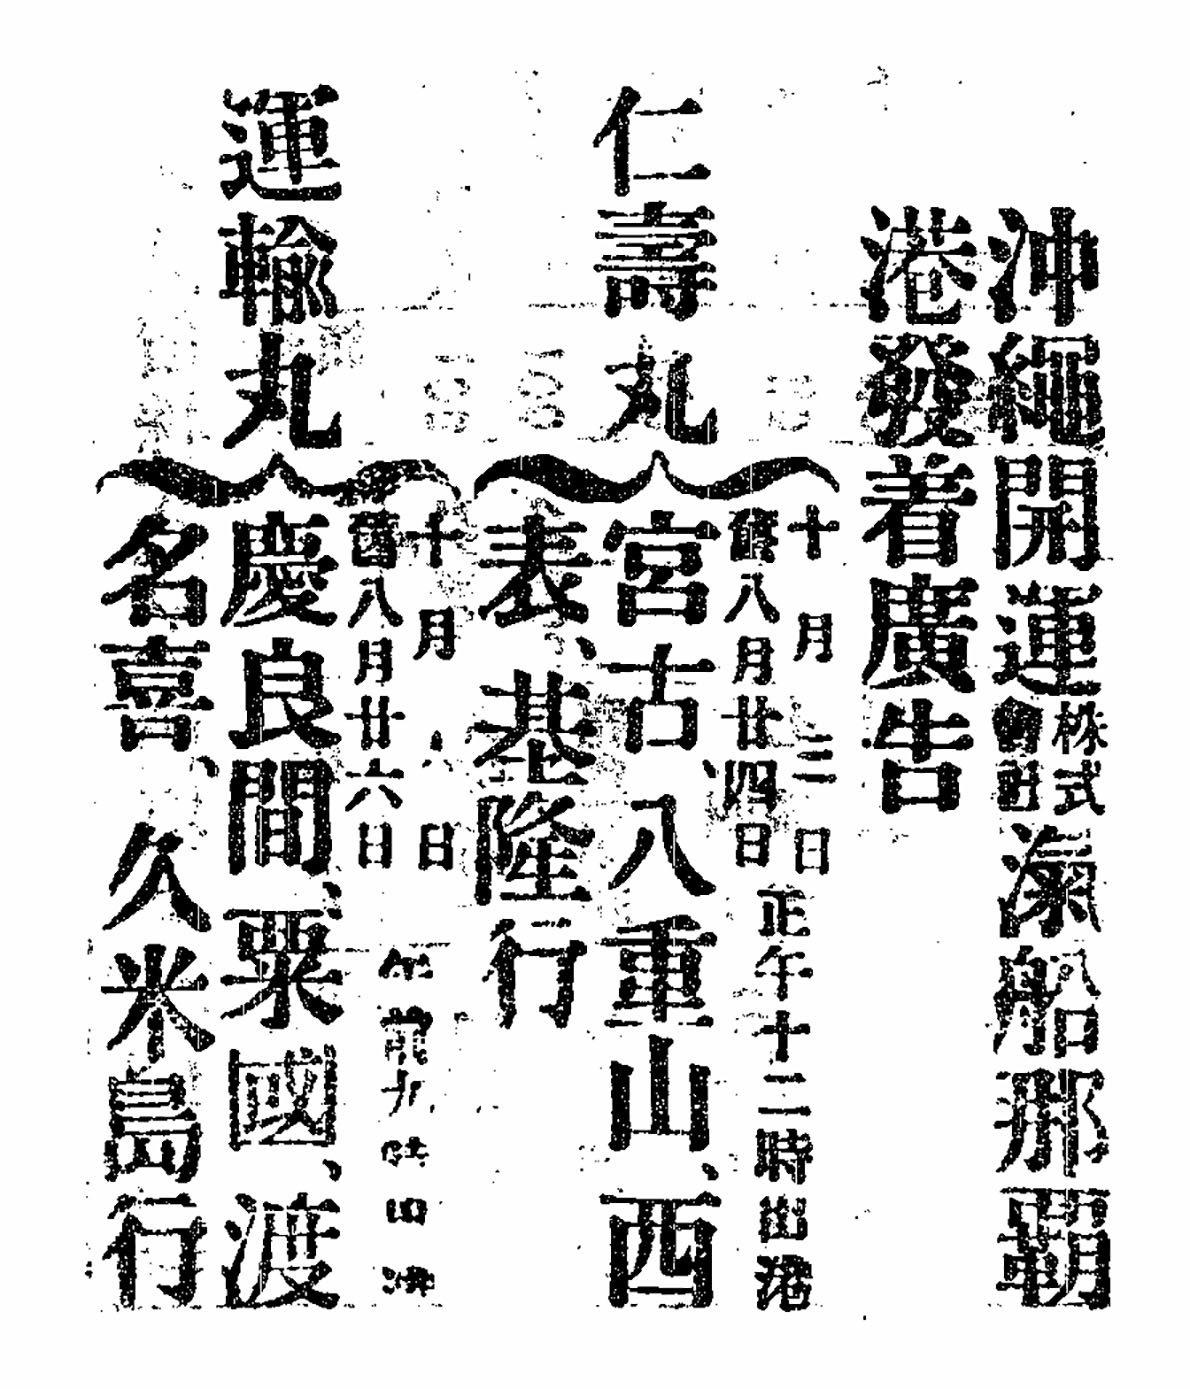 沖繩開運株式會社滊船那覇
港發着廣告
仁壽丸
十月三日
舊八月廿四日
正午十二時出港
宮古、八重山、西
表、基隆行
運輸丸
十月八日
舊八月廿六日
午前九時出港
慶良間、粟國、渡
名喜、久米島行